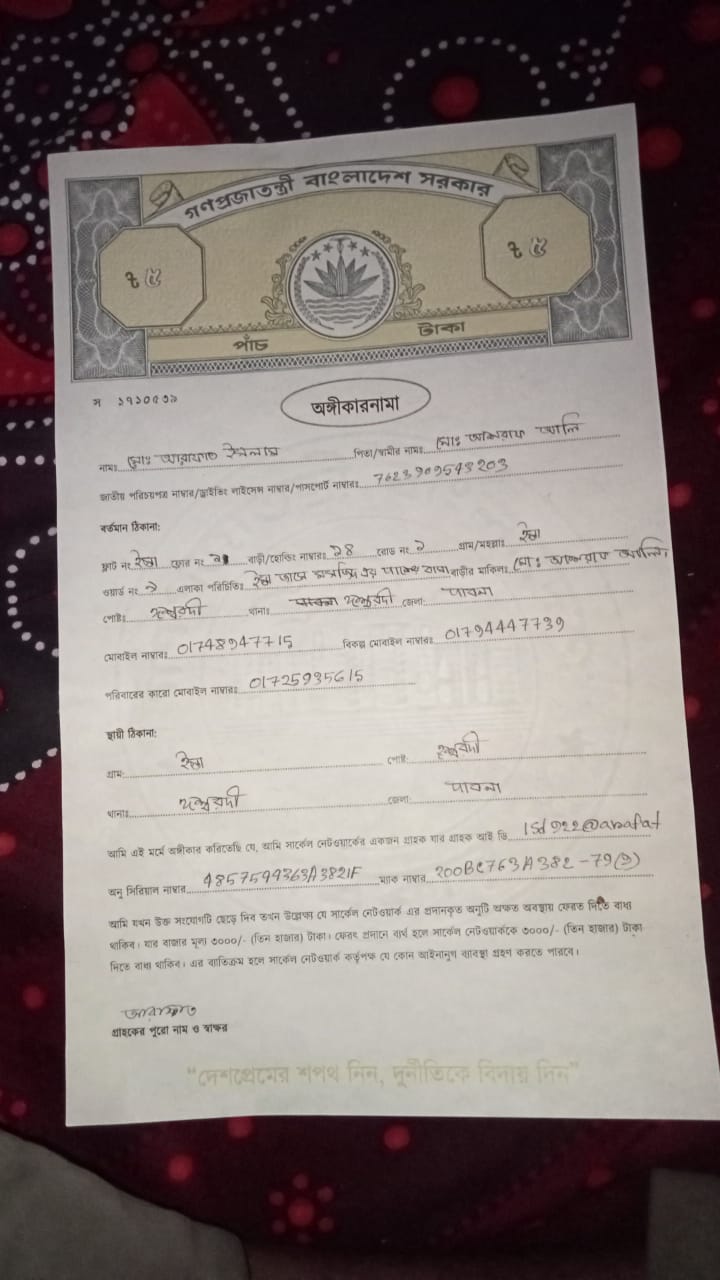 গণপ্রজাতন্ত্রী বাংলাদেশ সরকার
৳ ৫ ৳ ৫
পাঁচ টাকা
স ১৭১০৫৩৯
অঙ্গীকারনামা
নামঃ মোঃ আরাফাত ইসলাম পিতা/স্বামীর নামঃ মোঃ আশরাফ আলি
জাতীয় পরিচয়পত্র নাম্বার/ড্রাইভিং লাইসেন্স নাম্বার/পাসপোর্ট নাম্বারঃ 7623909543203
বর্তমান ঠিকানা:
ফ্লাট নং ফ্লোর নং বাড়ী/হোল্ডিং নাম্বারঃ রোড নং ৯ গ্রাম/মহল্লাঃ
ওয়ার্ড নং ৯ এলাকা পরিচিতিঃ জামে মসজিদ এর পাশের বাসা বাড়ীর মালিকঃ মোঃ আশরাফ আলি
পোষ্টঃ ঈশ্বরদী থানাঃ ঈশ্বরদী জেলা: পাবনা
মোবাইল নাম্বারঃ 01748947715 বিকল্প মোবাইল নাম্বারঃ 01794447739
পরিবারের কারো মোবাইল নাম্বারঃ 01725935615
স্থায়ী ঠিকানা:
গ্রাম: পোষ্ট: ঈশ্বরদী
থানাঃ ঈশ্বরদী জেলা: পাবনা
আমি এই মর্মে অঙ্গীকার করিতেছি যে, আমি সার্কেল নেটওয়ার্কের একজন গ্রাহক যার গ্রাহক আই ডি @arafat
অনু সিরিয়াল নাম্বার 4857544363A3821F ম্যাক নাম্বার 200BC763A382-79(9)
আমি যখন উক্ত সংযোগটি ছেড়ে দিব তখন উল্লেক্ষ্য যে সার্কেল নেটওয়ার্ক এর প্রদানকৃত অনুটি অক্ষত অবস্থায় ফেরত দিতে বাধ্য
থাকিব। যার বাজার মূল্য ৩০০০/- (তিন হাজার) টাকা। ফেরৎ প্রদানে ব্যর্থ হলে সার্কেল নেটওয়ার্ককে ৩০০০/- (তিন হাজার) টাকা
দিতে বাধ্য থাকিব। এর ব্যতিক্রম হলে সার্কেল নেটওয়ার্ক কর্তৃপক্ষ যে কোন আইনানুগ ব্যবস্থা গ্রহণ করতে পারবে।
আরাফাত
গ্রাহকের পুরো নাম ও স্বাক্ষর
“দেশপ্রেমের শপথ নিন, দুর্নীতিকে বিদায় দিন”